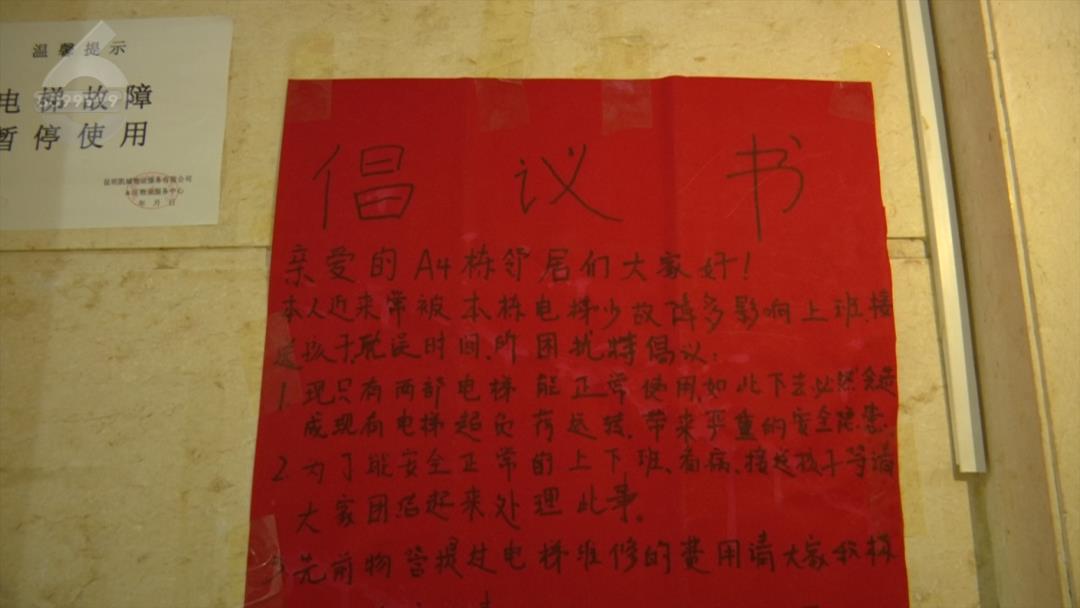 温馨提示
电梯故障
暂停使用
昆明凯城物业服务有限公司
物业服务中心
年 月 日
倡议书
亲爱的A4栋邻居们大家好！
本人近来常被本栋电梯少故障多影响上班、接
送孩子、耽误时间、所困扰特倡议：
1. 现只有两部电梯能正常使用，如此下去必然会造
成现有电梯超负荷运转，带来严重的安全隐患。
2. 为了能安全正常的上下班、看病、接送孩子等请
大家团结起来处理此事。
3. 先前物管提过电梯维修的费用请大家我栋